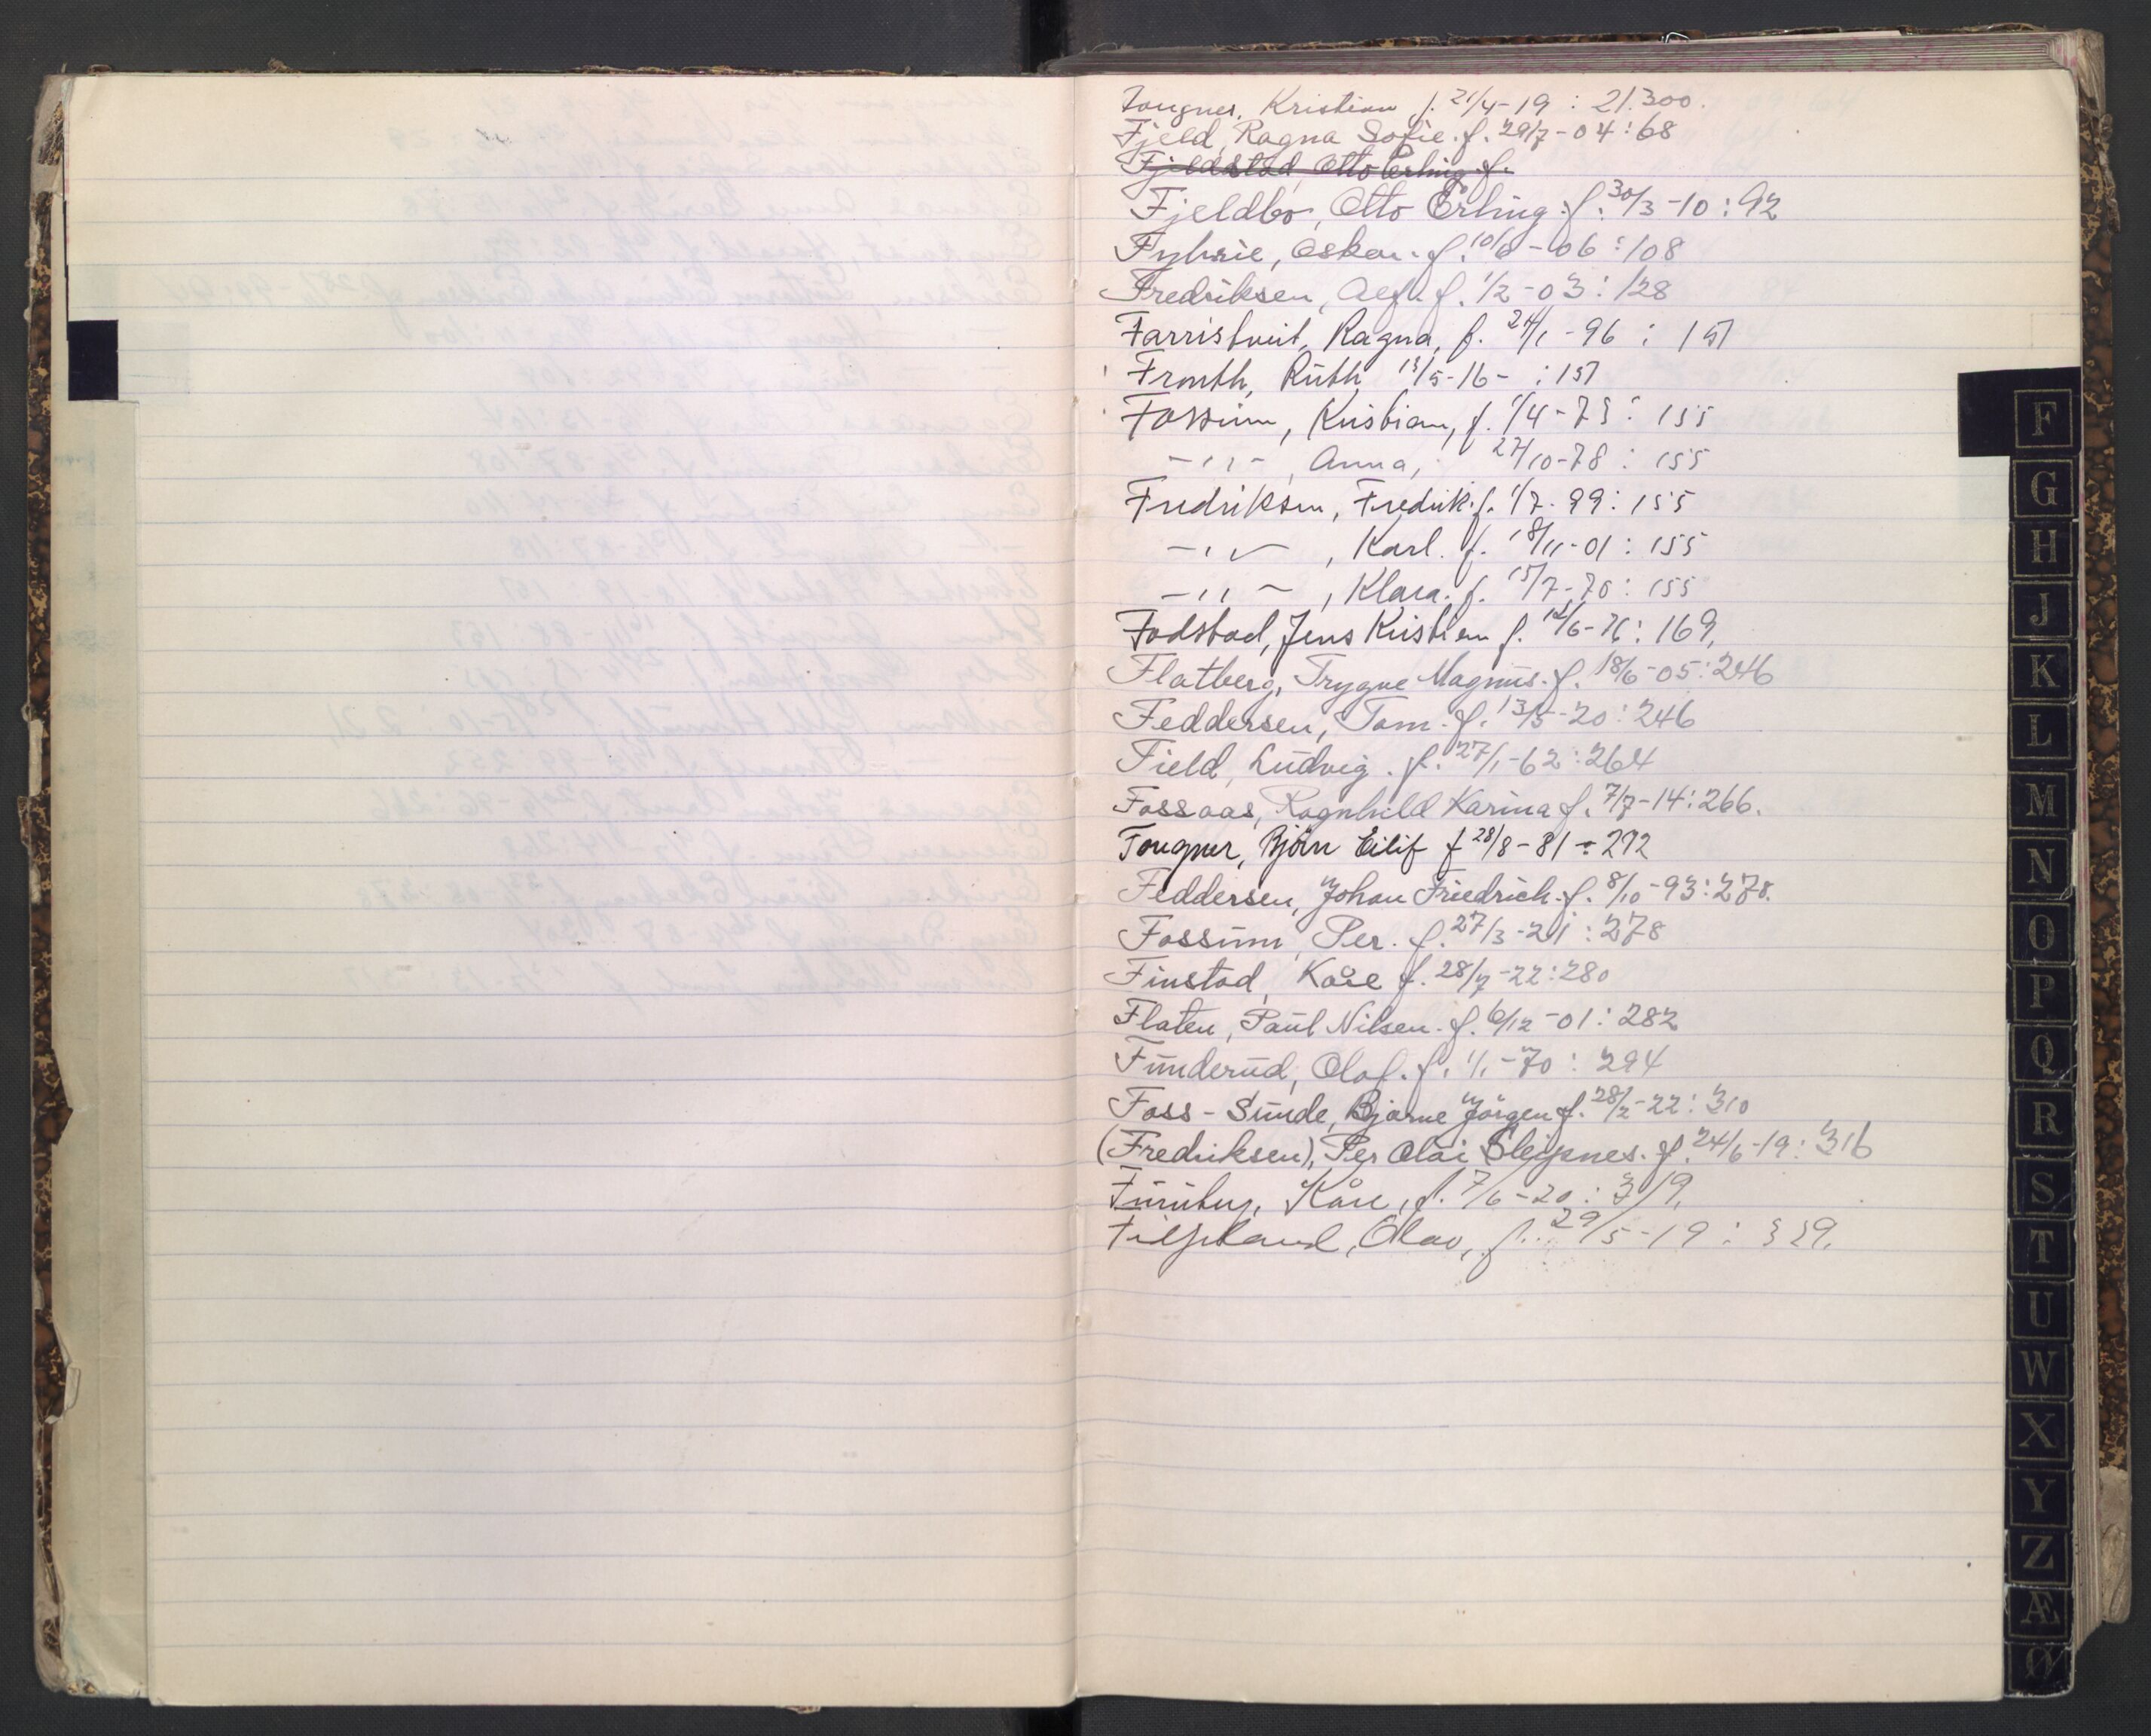 Fougner, Kristian f. 21/4-19 : 21.300.
Fjeld, Ragna Sofie. f. 29/7-04 : 68
Fjeldstad, Otto Erling. f.
Fjeldbo, Otto Erling. f. 30/3-10 : 92
Fyhrie, Oskar. f. 10/6-06 : 108
Fredriksen, Alf. f. 1/2-03 : 128
Farristveit, Ragna, f. 24/1-96 : 151
Fronth, Ruth 13/5-16- : 151
Fossum, Kristian, f. 1/4-73 : 155
-,,-, Anna, 27/10-78 : 155
Fredriksen, Fredrik. f. 1/7-99 : 155
-,,-, Karl. f. 18/11-01 : 155
-,,-, Klara. f. 15/7-70 : 155
Fodstad, Jens Kristian f. 12/6-76 : 169.
Flatberg, Trygve Magnus. f. 18/6-05 : 246
Feddersen, Tom. f. 13/5-20 : 246
Field, Ludvig. f. 27/1-62 : 264
Fossaas, Ragnhild Karina f. 7/7-14 : 266.
Fougner, Bjørn Eilif f 28/8-81 : 272
Feddersen, Johan Friedrich. f. 8/10-93 : 278.
Fossum, Per. f. 27/3-21 : 278
Finstad, Kåre f. 28/7-22 : 280
Flaten, Paul Nilsen. f. 6/12-01 : 282
Funderud, Olaf. f. 1/1-70 : 294
Foss-Sunde, Bjarne Jörgen f. 28/2-22 : 310
(Fredriksen), Per Olai Sleipnes. f. 24/6-19 : 316
Furuberg, Kåre, f. 7/6-20 : 319.
Olav, f. 29/5-19 : 329.
F
G
H
J
K
L
M
N
O
P
Q
R
S
T
U
W
X
Y
Z
Æ
Ø